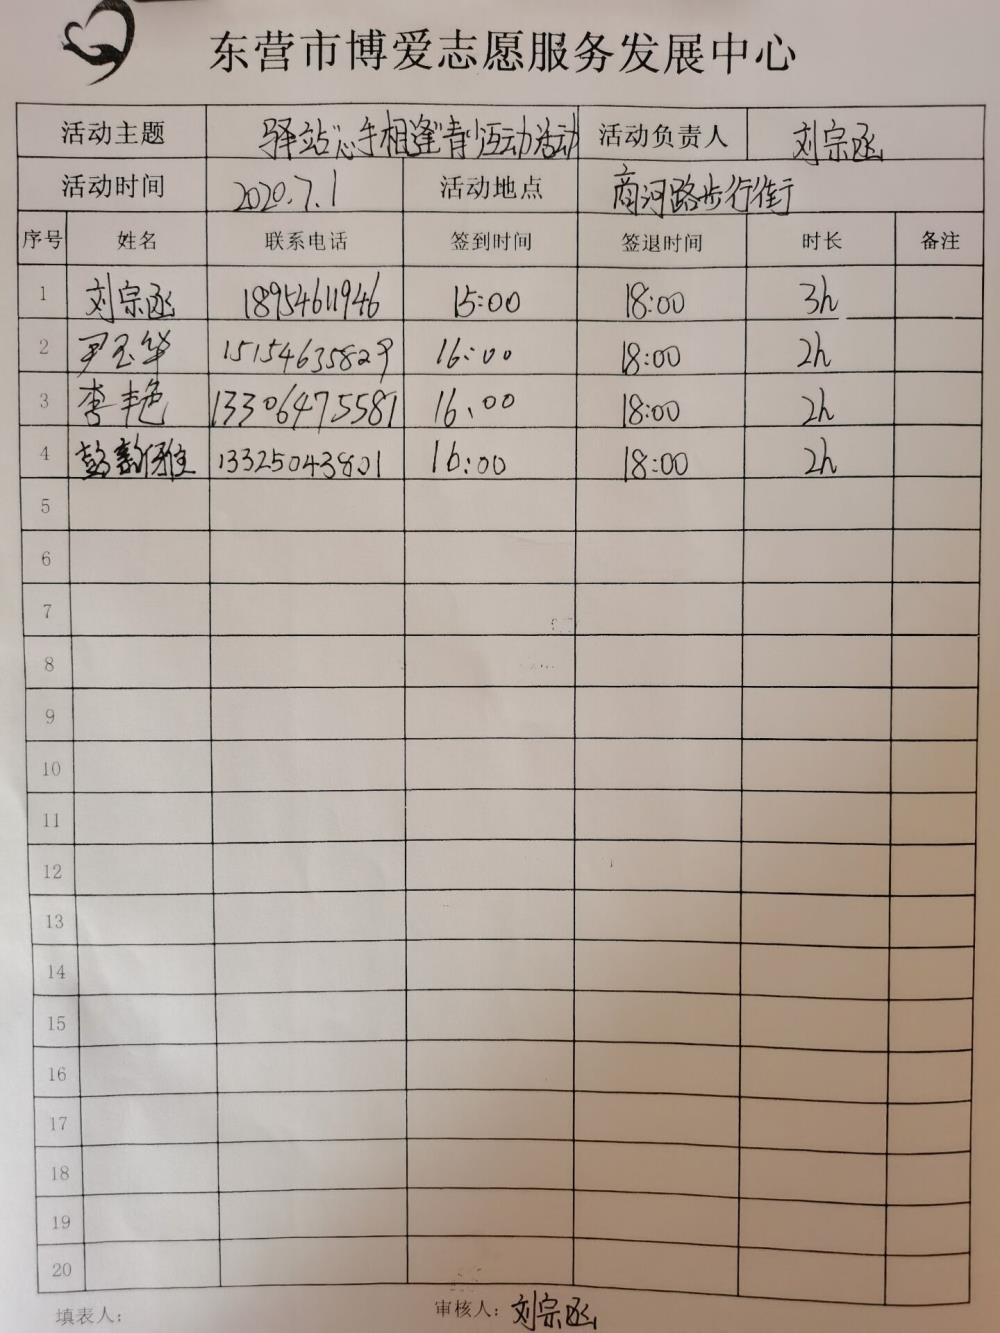 东营市博爱志愿服务发展中心
活动主题 驿站"心手相逢"青 运动活动 活动负责人 刘宗函
活动时间 2020.7.1 活动地点 商河路步行街
序号 姓名 联系电话 签到时间 签退时间 时长 备注
1 刘宗函 18954611946 15:00 18:00 3h
2 尹玉华 15154635829 16:00 18:00 2h
3 李丰艳 13306475581 16:00 18:00 2h
4 彭 雅 13325043801 16:00 18:00 2h
5
6
7
8
9
10
11
12
13
14
15
16
17
18
19
20
填表人： 审核人：刘宗函